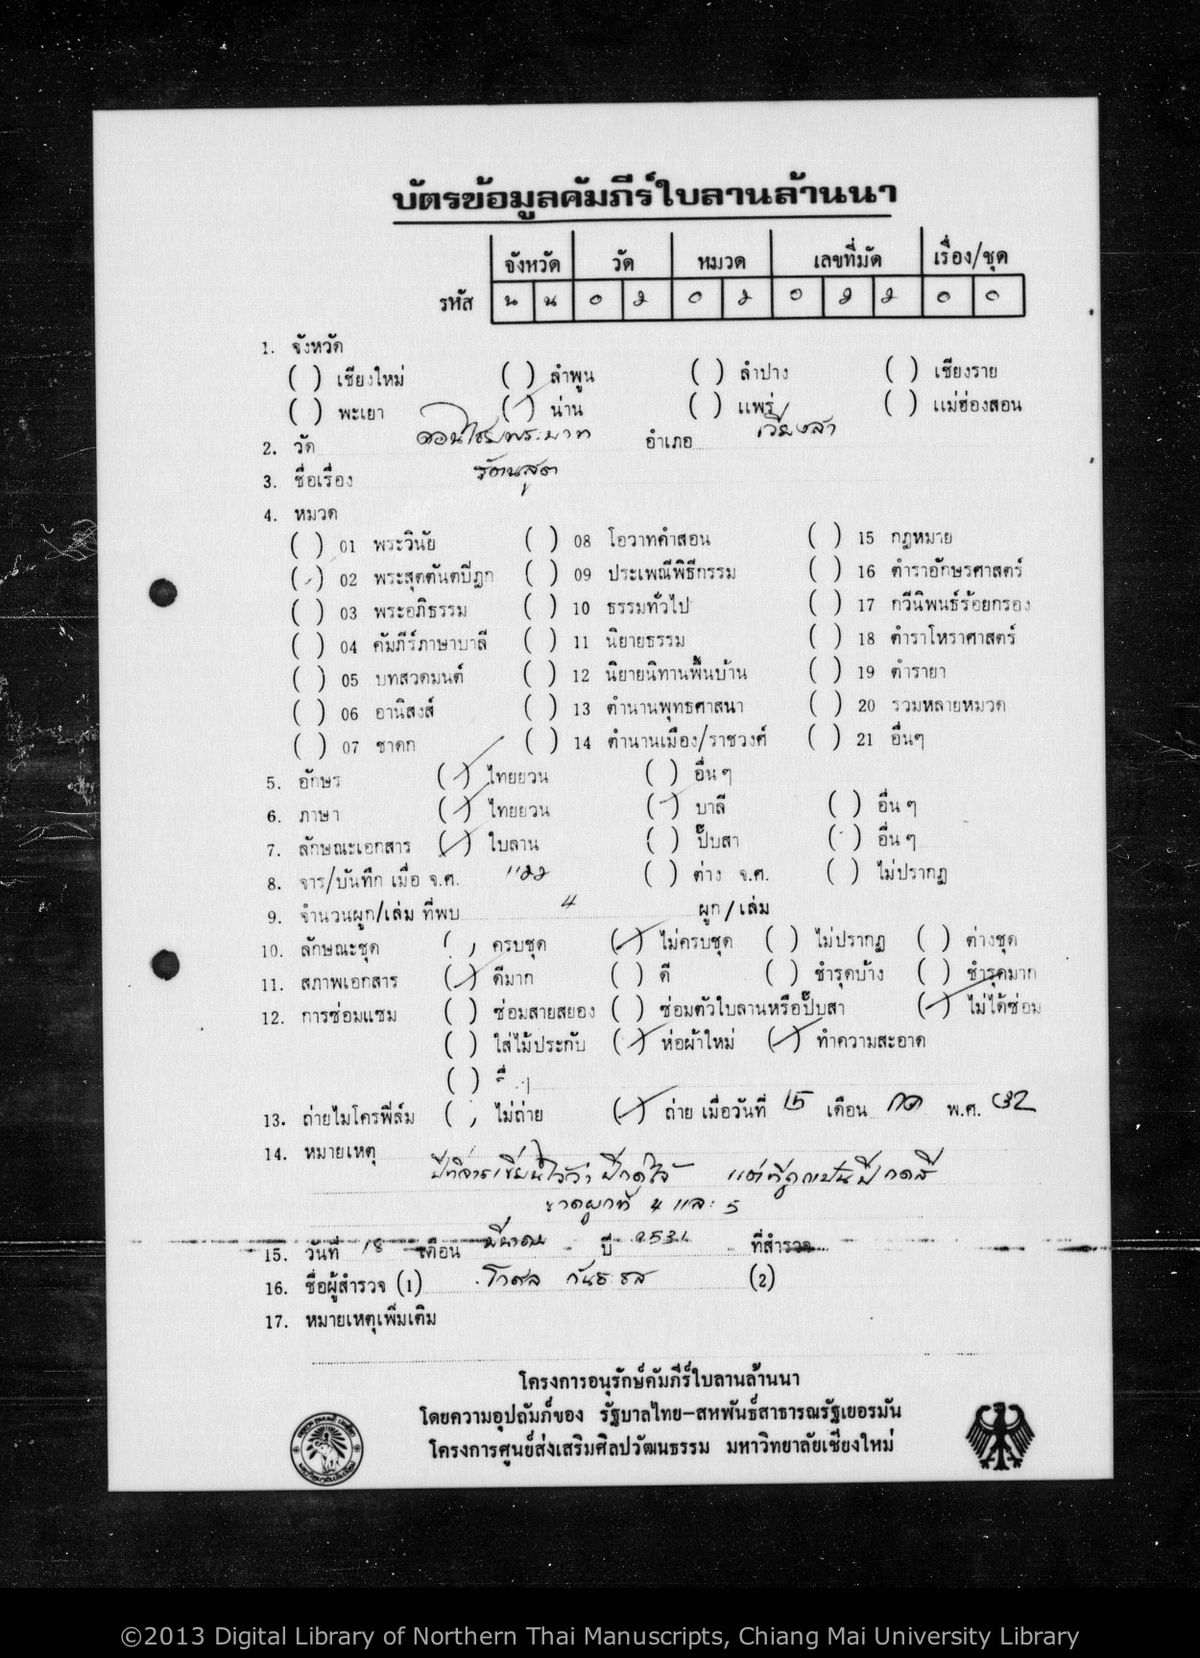 บัตรข้อมูลคัมภีร์ใบลานล้านนา
จังหวัด วัด หมวด เลขที่มัด เรื่อง/ชุด
รหัส น น 0 2 0 2 0 2 2 0 0
1. จังหวัด
( ) เชียงใหม่ ( ) ลำพูน ( ) ลำปาง ( ) เชียงราย
( ) พะเยา (/) น่าน ( ) แพร่ ( ) แม่ฮ่องสอน
2. วัด ดอนไชยพระบาท อำเภอ เวียงสา
3. ชื่อเรื่อง รัตนสูต
4. หมวด
( ) 01 พระวินัย ( ) 08 โอวาทคำสอน ( ) 15 กฎหมาย
(/) 02 พระสุตตันตปิฎก ( ) 09 ประเพณีพิธีกรรม ( ) 16 ตำราอักษรศาสตร์
( ) 03 พระอภิธรรม ( ) 10 ธรรมทั่วไป ( ) 17 กวีนิพนธ์ร้อยกรอง
( ) 04 คัมภีร์ภาษาบาลี ( ) 11 นิยายธรรม ( ) 18 ตำราโหราศาสตร์
( ) 05 บทสวดมนต์ ( ) 12 นิยายนิทานพื้นบ้าน ( ) 19 ตำรายา
( ) 06 อานิสงส์ ( ) 13 ตำนานพุทธศาสนา ( ) 20 รวมหลายหมวด
( ) 07 ชาดก ( ) 14 ตำนานเมือง/ราชวงศ์ ( ) 21 อื่นๆ
5. อักษร (/) ไทยยวน ( ) อื่น ๆ
6. ภาษา (/) ไทยยวน (/) บาลี ( ) อื่น ๆ
7. ลักษณะเอกสาร (/) ใบลาน ( ) ปั๊บสา ( ) อื่น ๆ
8. จาร/บันทึก เมื่อ จ.ศ. 1122 ( ) ต่าง จ.ศ. ( ) ไม่ปรากฏ
9. จำนวนผูก/เล่ม ที่พบ 4 ผูก/เล่ม
10. ลักษณะชุด ( ) ครบชุด (/) ไม่ครบชุด ( ) ไม่ปรากฏ ( ) ต่างชุด
11. สภาพเอกสาร (/) ดีมาก ( ) ดี ( ) ชำรุดบ้าง ( ) ชำรุดมาก
12. การซ่อมแซม ( ) ซ่อมสายสยอง ( ) ซ่อมตัวใบลานหรือปั๊บสา (/) ไม่ได้ซ่อม
( ) ใส่ไม้ประกับ (/) ห่อผ้าใหม่ (/) ทำความสะอาด
( )
13. ถ่ายไมโครฟิล์ม ( ) ไม่ถ่าย (/) ถ่าย เมื่อวันที่ 15 เดือน กค พ.ศ. 32
14. หมายเหตุ ปีที่จารเขียนไว้ว่า ปีกดใจ้ แต่ที่ถูกเป็นปี กดสี
ขาดผูกที่ 4 และ 5
15. วันที่ 18 เดือน มีนาคม ปี 2531 ที่สำรวจ
16. ชื่อผู้สำรวจ (1) โกศล (2)
17. หมายเหตุเพิ่มเติม
โครงการอนุรักษ์คัมภีร์ใบลานล้านนา
โดยความอุปถัมภ์ของ รัฐบาลไทย-สหพันธ์สาธารณรัฐเยอรมัน
โครงการศูนย์ส่งเสริมศิลปวัฒนธรรม มหาวิทยาลัยเชียงใหม่
©2013 Digital Library of Northern Thai Manuscripts, Chiang Mai University Library